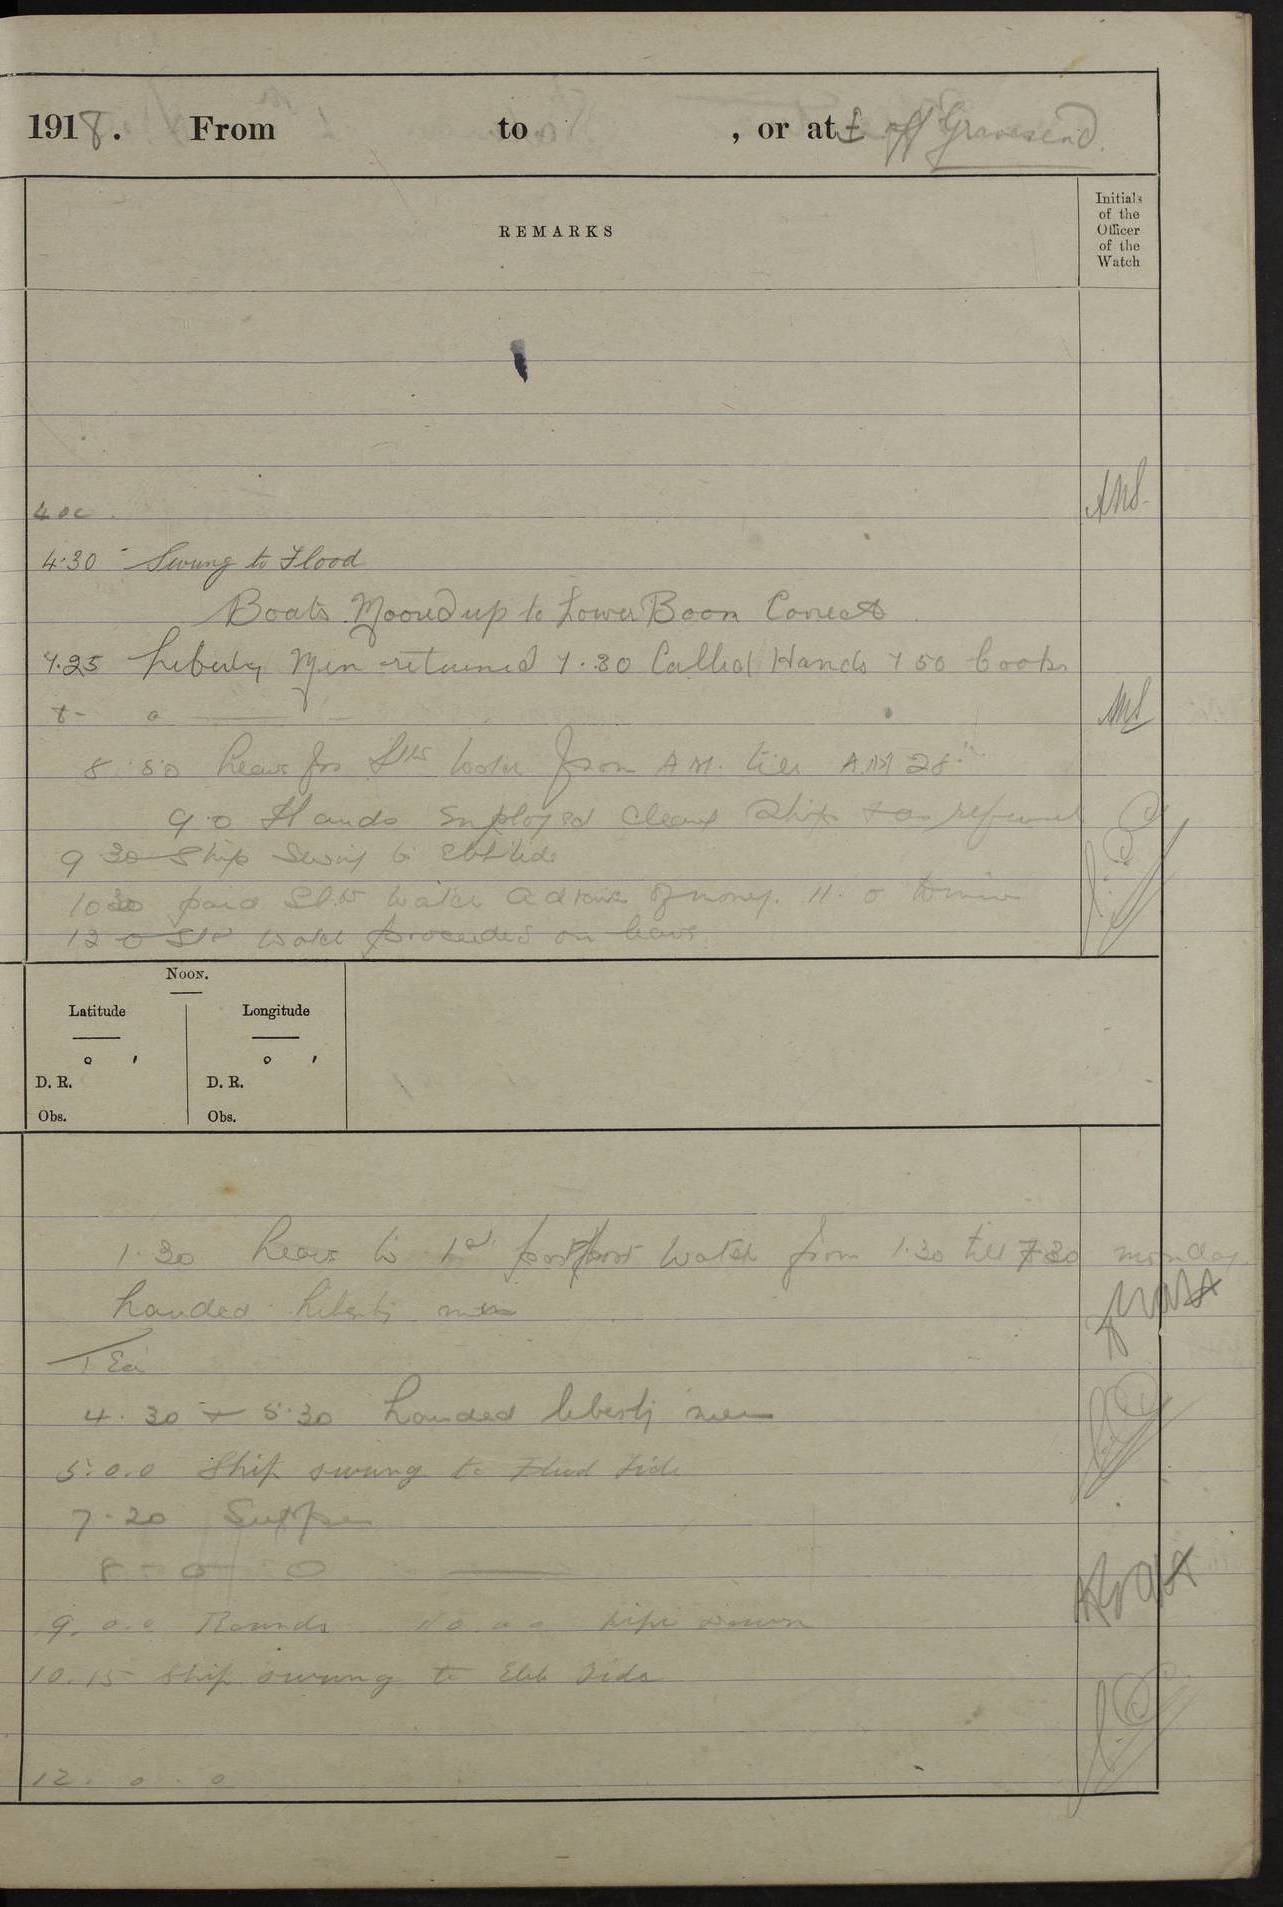 1918. From to , or at ⚓ off Gravesend.
REMARKS
Initials
of the
Officer
of the
Watch
4.30 Swung to Flood
Boats Moored up to Lower Boom Correct
7.25 Liberty Men returned 7.30 Called Hands 7 50 Cooks
8.50 Leave for Stb Watch from A M. till A.M 28th
9.0 Hands Employed Clean Ship & as
9 30 Ship Swung to Ebb tide
10 30 paid Stb Watch advance of money. 11. 0
12 0 Stb Watch proceeded on leave
Noon.
Latitude Longitude
° ′ ° ′
D. R. D. R.
Obs. Obs.
1.30 Leave to 1st part port Watch from 1.30 till 7.30 monday
Landed Liberty men
Tea
4.30 + 5.30 Landed liberty men
5.0.0 Ship swung to Flood Tide
7.20 Supper
8 - 0 0
9.0.0 Rounds 10.0.0 pipe down
10.15 Ship swung to Ebb Tide
12. 0. 0